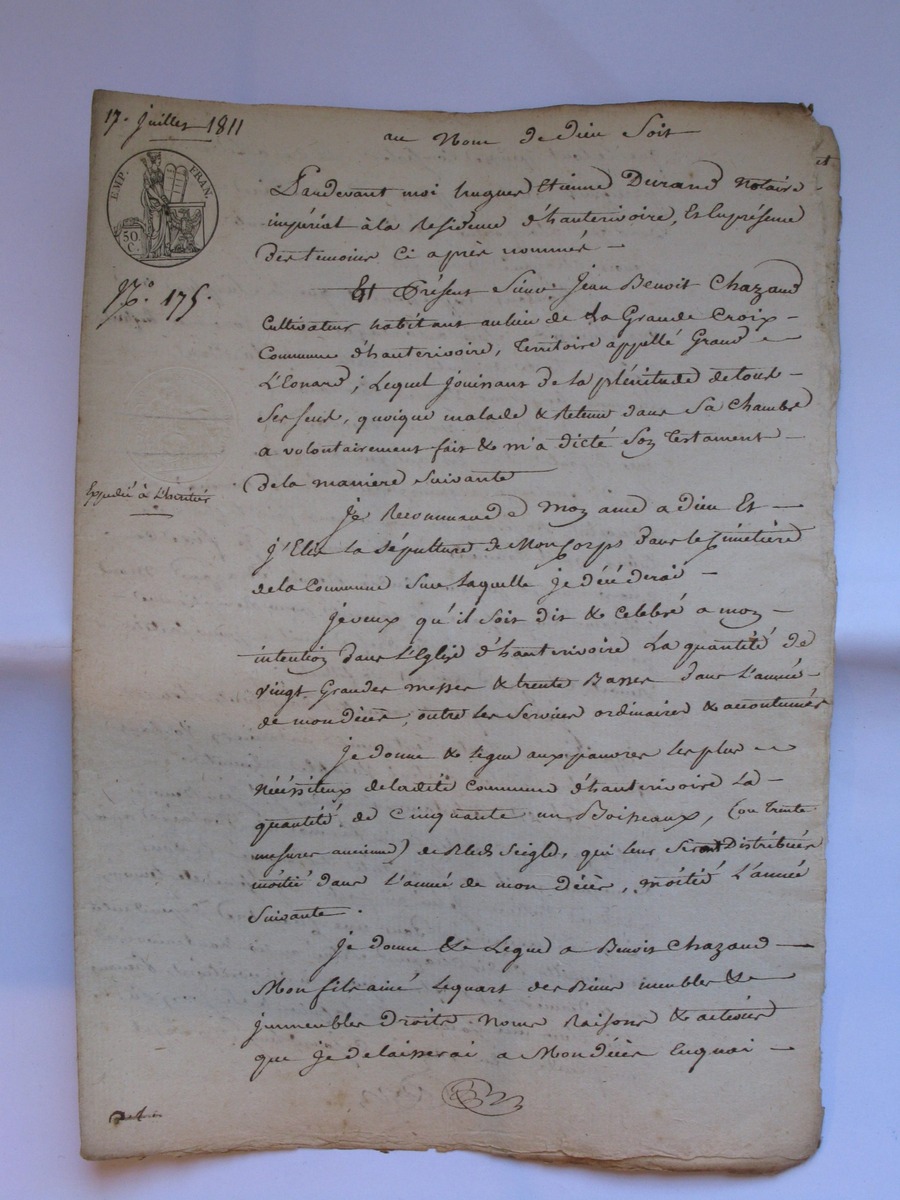 17. Juillet 1811
EMP. FRAN.
50 C.
N.º 175.
Expedié à L'heritier
au Nom de dieu Soit
Pardevant moi hugues Etienne Durand Notaire
impérial à la Residence d'hauterivoire, Et En présence
des temoins Ci après nommés —
Et Présent Sieur Jean Benoit Chazaud
Cultivateur habitant au lieu de la Grande Croix —
Commune d'hauterivoire, territoire appellé Grand —
L'Eonard; Lequel Jouissant de la plénitude de tous —
Ses sens, quoique malade & Retenu dans Sa Chambre
a volontairement fait & m'a dicté Son Testament —
de la maniere Suivante
Je Recommande Mon ame a dieu Et —
j'Elis la Sépulture de Mon Corps dans le Cimetière
de la Commune Sur Laquelle je décéderai —
Je veux qu'il Soit dit & Celebré a mon —
intention dans L'Eglise d'hauterivoire La quantité de
Vingt Grandes messes & trente Basses dans L'année
de mon décès, outre les Services ordinaires & accoutumés
Je donne & legue aux pauvres les plus —
Nécéssiteux de ladite Commune d'hauterivoire La —
quantité de Cinquante un Boisseaux, (ou trente
mesures anciennes) de Bled Seigle, qui leur Seront Distribuées
moitié dans L'année de mon décès, moitié L'année
Suivante.
Je donne & Legue a Benoit Chazaud —
Mon fils ainé Le quart des Biens meubles &
jmmeubles Droits Noms Raisons & actions
que je delaisserai a Mon décès Enquoi —